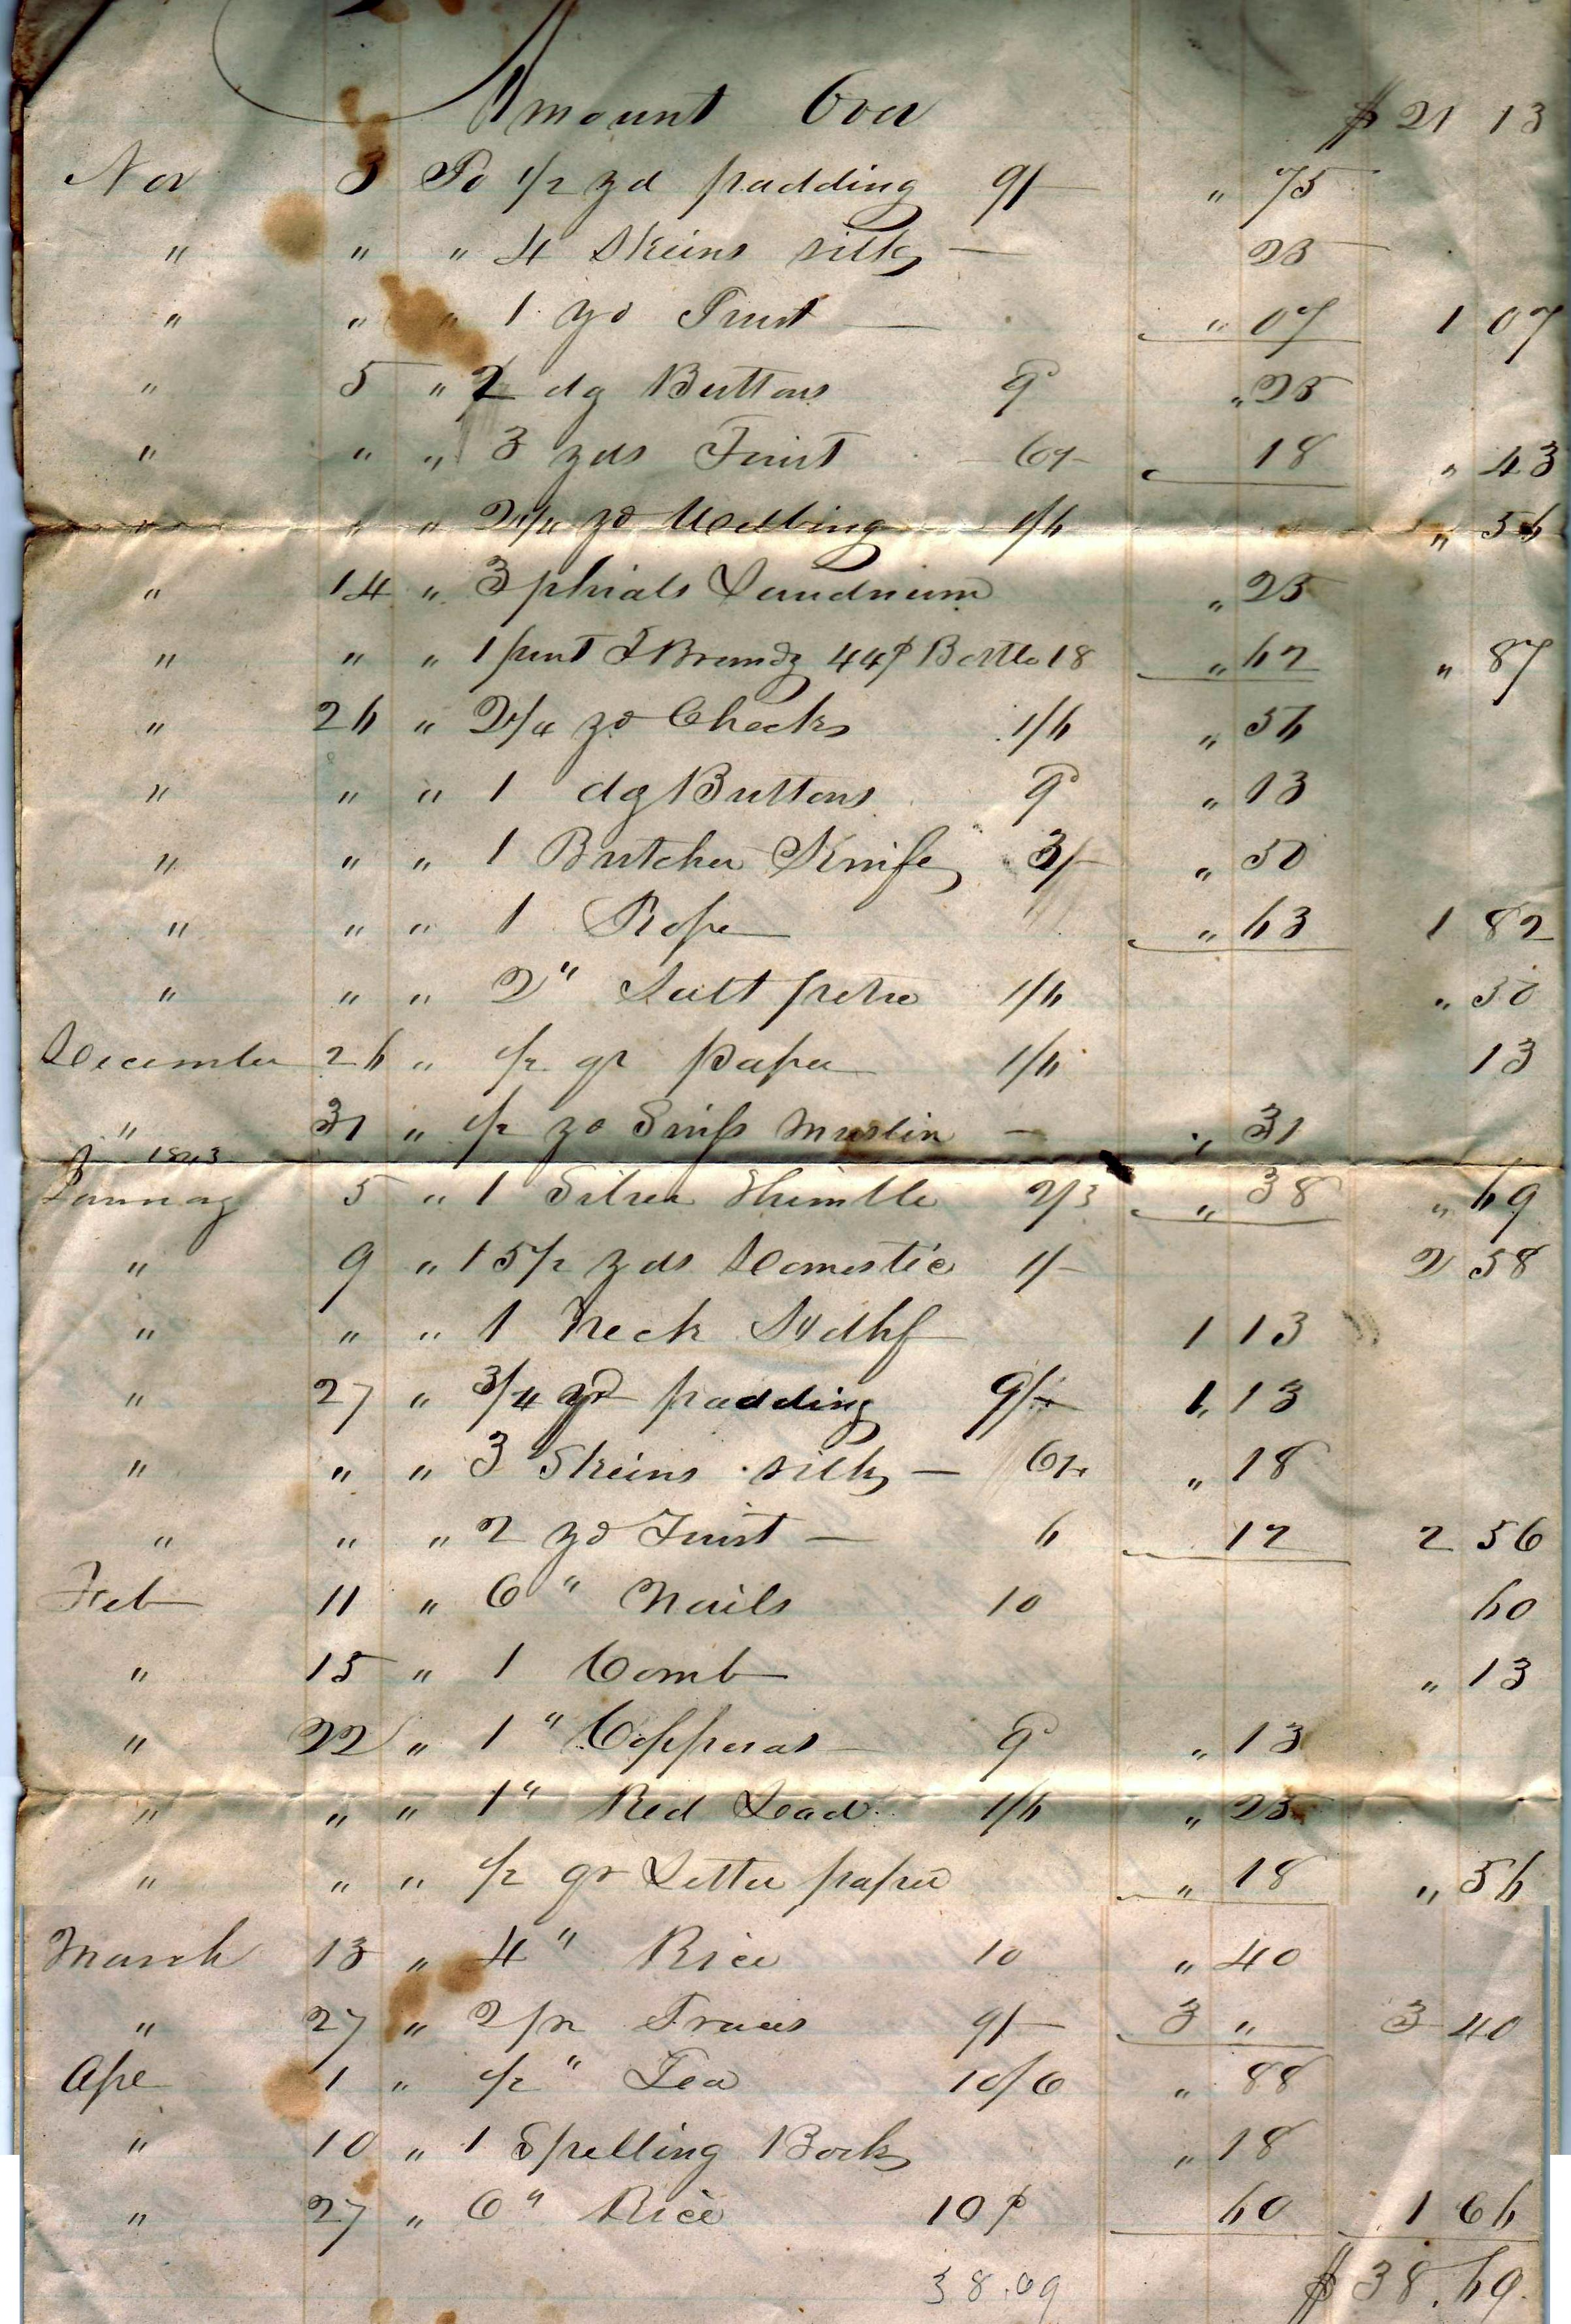 Amount Over $ 21 13
Nov 3 To 1/2 yd padding 9/- " 75
" " " 4 Skeins silk - 25
" " " 1 yd Twist - " 07 1 07
" 5 " 2 dz Buttons 9d " 25
" " " 3 yds Twist 6 1/4 18 " 43
" " " 2 1/4 yd Webbing 1/6 " 56
" 14 " 3 phials Laudnum " 25
" " " 1 pint F Brandy 44¢ Bottle 18 " 62 " 87
" 26 " 2 1/4 yd Checks 1/6 " 56
" " " 1 dz Buttons 9d " 13
" " " 1 Butcher Knife 3/- " 50
" " " 1 Rope " 63 1 82
" " " 2 " Salt petre 1/6 " 50
December 26 " 1/2 qr paper 1/6 13
" 31 " 1/2 yd Swiss Muslin - " 31
1843
January 5 " 1 Silver Thimble 2/3 " 38 " 69
" 9 " 15 1/2 yds Domestic 1/- 2 58
" " " 1 Neck Hdkf 1 13
" 27 " 3/4 yd padding 9/- 1 " 13
" " " 3 Skeins silk - 6 1/4 " 18
" " " 2 yd Twist - 6 12 2 56
Feb 11 " 6 " Nails 10 60
" 15 " 1 Comb " 13
" 22 " 1 " Copperas 9d " 13
" " " 1 " Red Lead 1/6 " 25
" " " 1/2 qr Letter paper " 18 " 56
March 13 " 4 " Rice 10 " 40
" 27 " 2 pr Traces 9/- 3 " 3 40
Apl 1 " 1/2 " Tea 10/6 " 88
" 10 " 1 Spelling Book " 18
" 27 " 6 " Rice 10¢ 60 1 66
38.69 $ 38.69